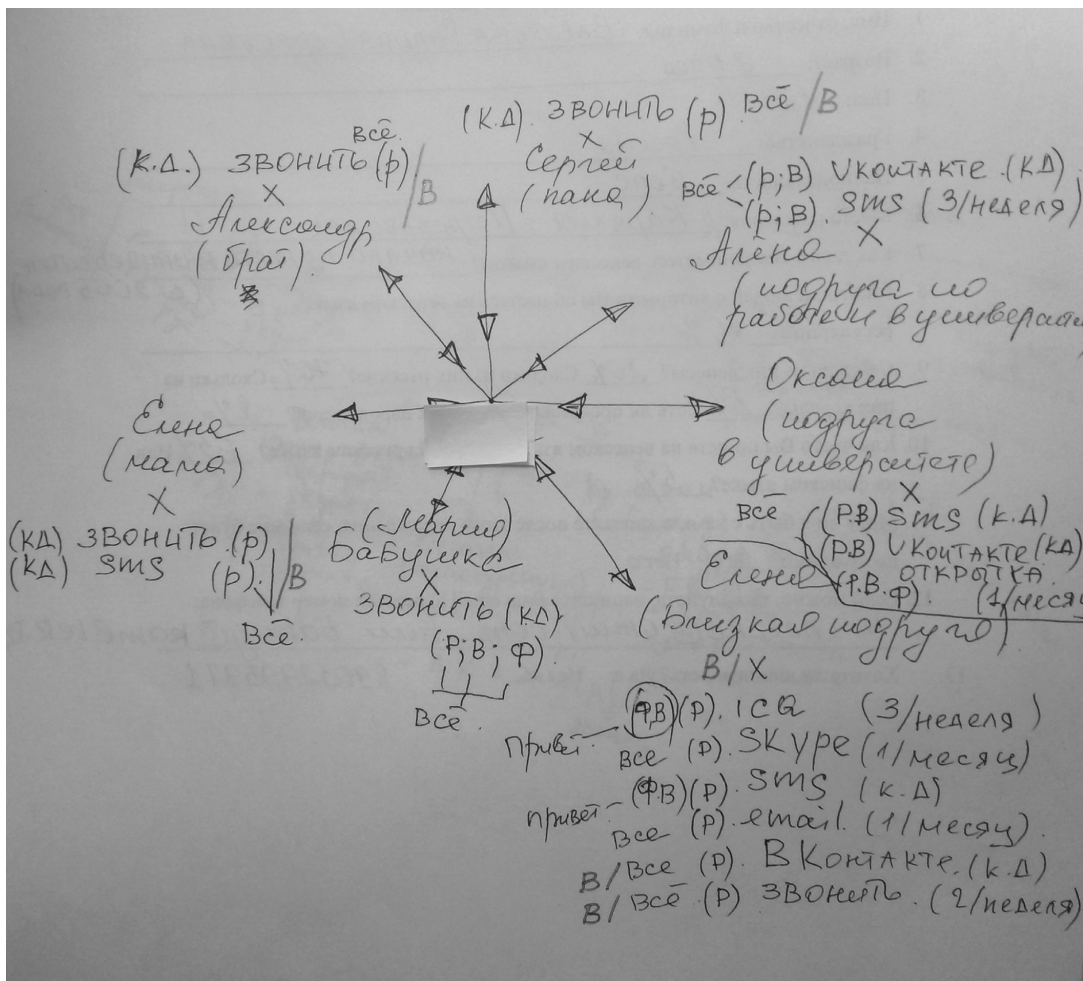 (К.Д). ЗВОНИТЬ (р) Всё /В
Х
Сергей
(папа).
всё.
(К.Д.) ЗВОНИТЬ (р) /В
Х
Александр
(брат).
Всё (р;В) VКонтакте (КД)
(р;В). SMS (3/неделя)
Алёна Х
(подруга по
работе и в университе
Оксана
(подруга
в университете)
Х
Всё
(РВ) SMS (К.Д)
(РВ) VКонтакте (КД)
(Р.В.Ф). ОТКРЫТКА (1/месяц
Елена
(мама)
Х
(КД) ЗВОНИТЬ (р)
(КД) SMS (р). /В
Всё.
(Мария)
Бабушка
Х
ЗВОНИТЬ (КД)
(Р; В; Ф).
Всё.
Елена
(Близкая подруга)
В/Х
привет. (ФВ)(Р). ICQ (3/неделя)
Все (Р). SKYPE (1/месяц)
привет (Ф.В)(Р). SMS (К.Д)
Все (Р). email. (1/месяц).
В/Все (Р). ВКонтакте. (К.Д)
В/Всё (Р) ЗВОНИТЬ. (2/неделя)